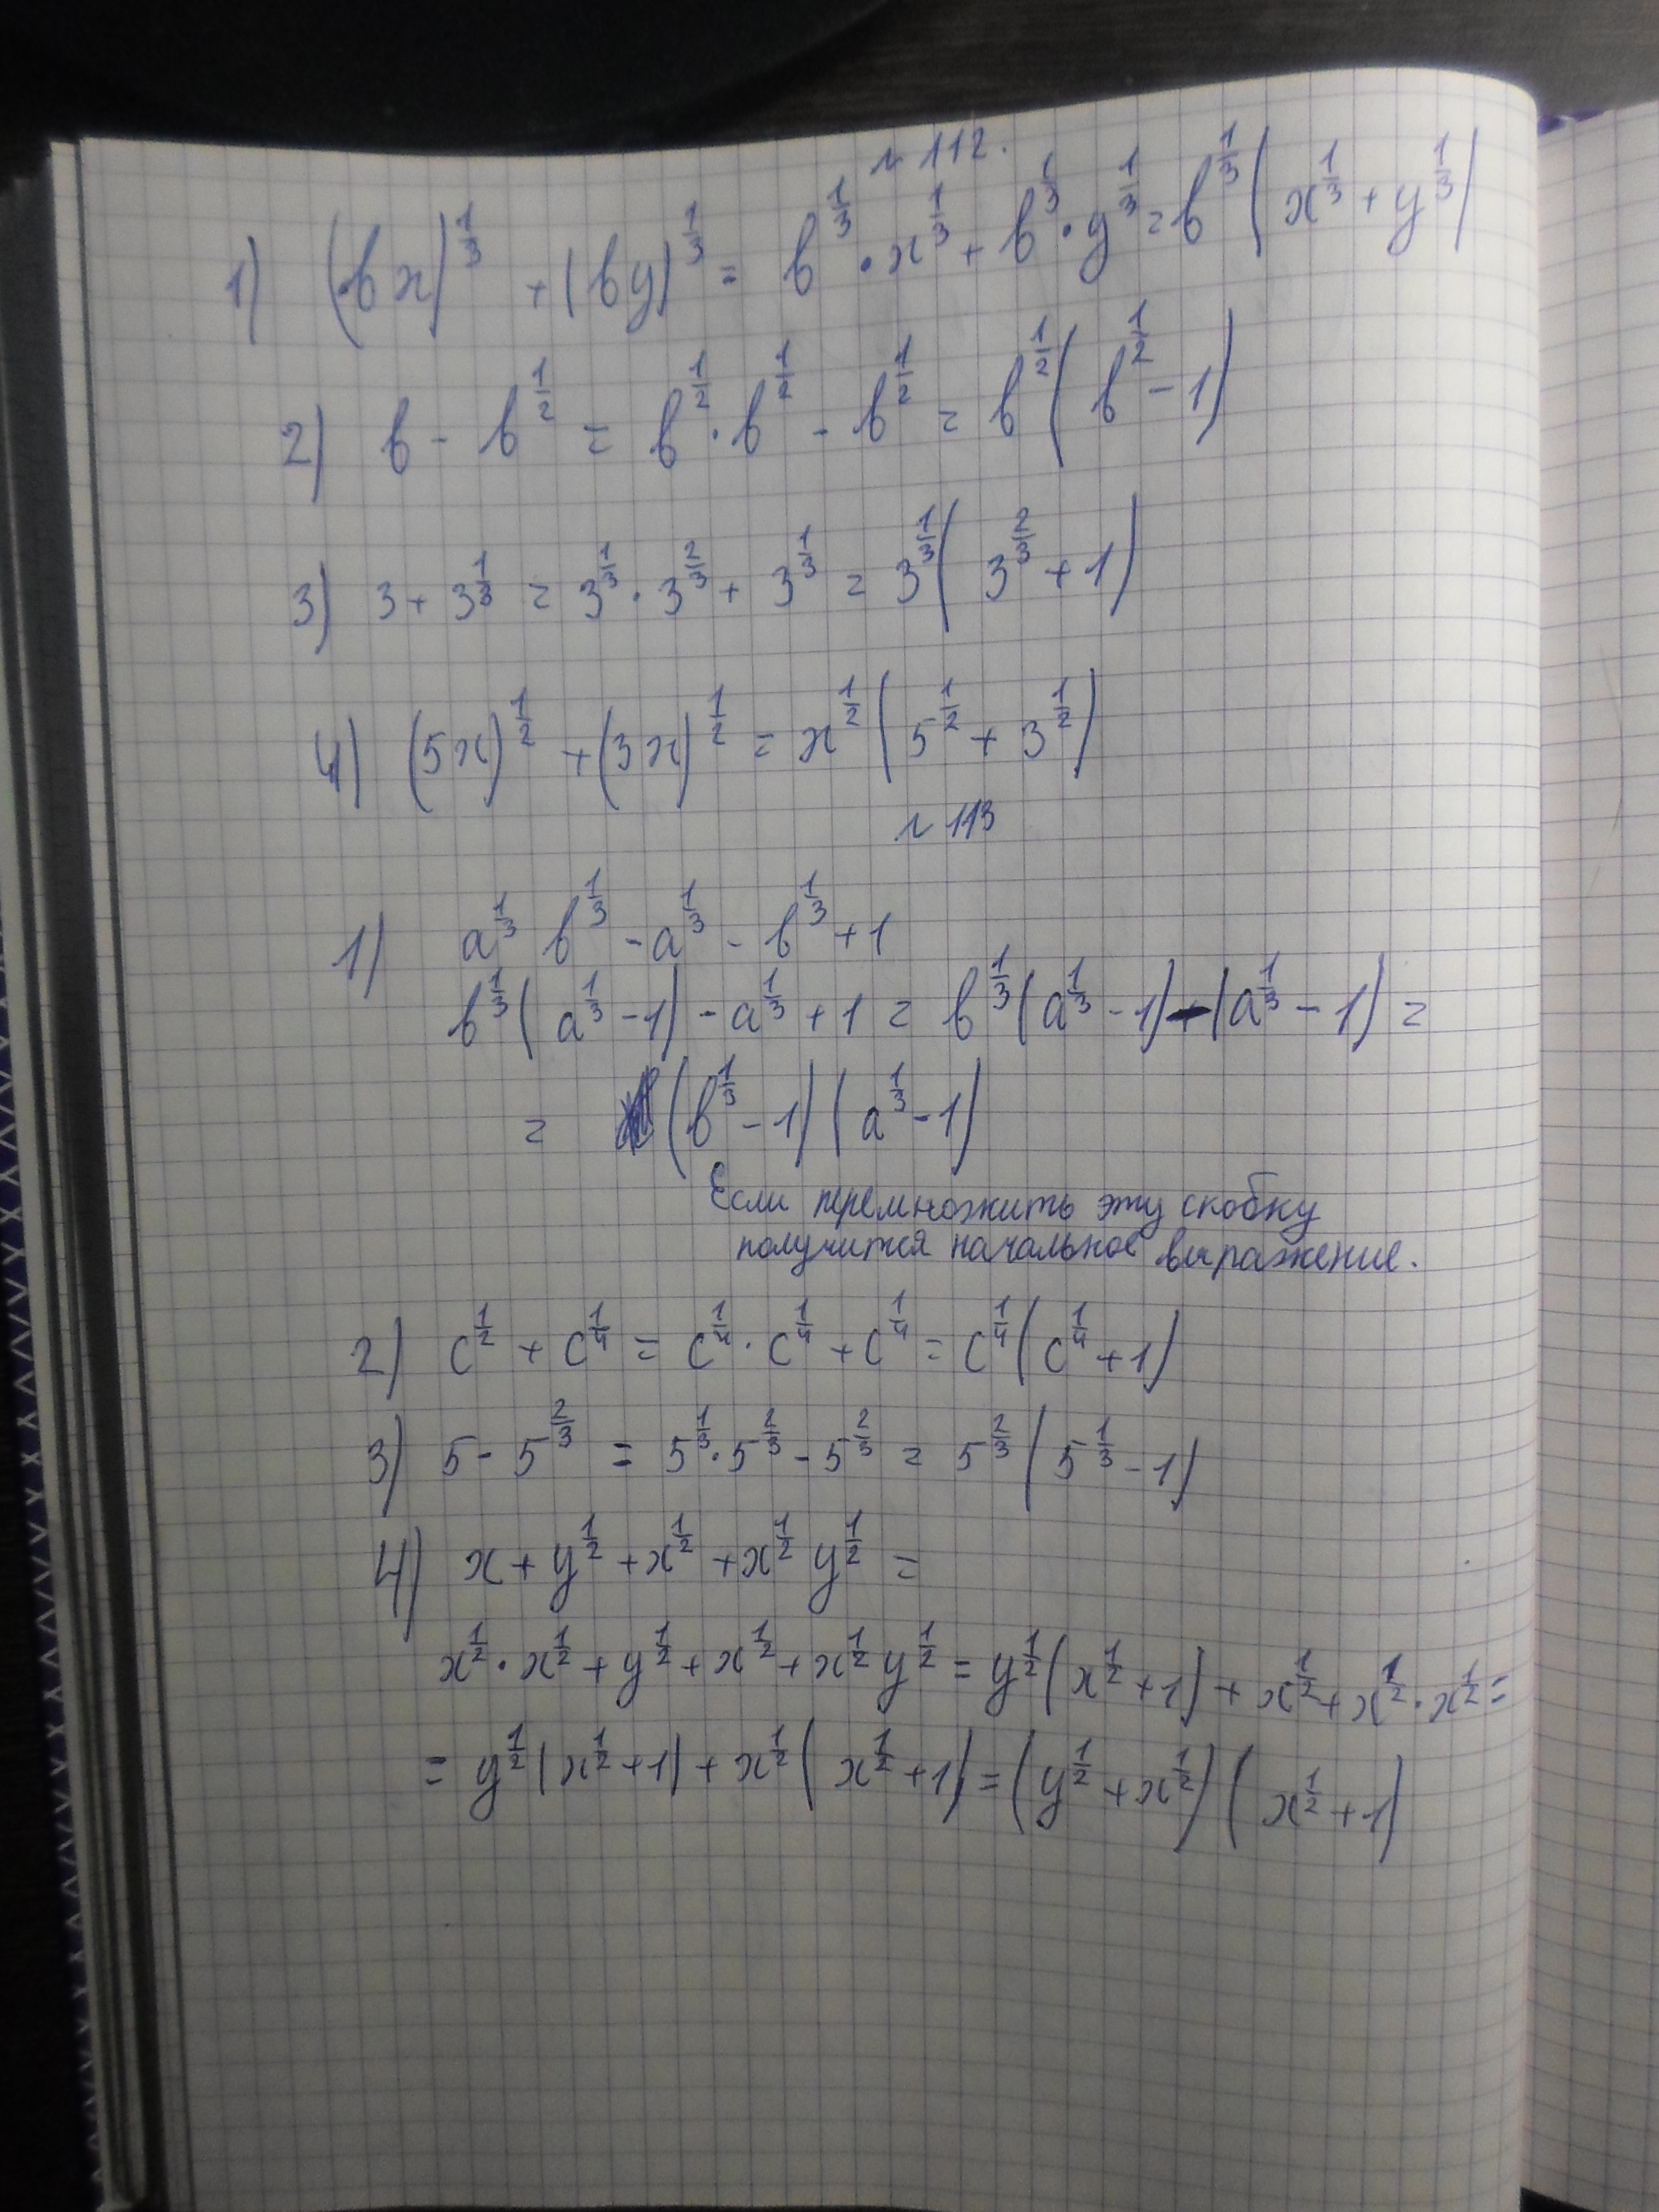 № 112.
1) (bx)^{1/3} + (by)^{1/3} = b^{1/3} · x^{1/3} + b^{1/3} · y^{1/3} = b^{1/3} (x^{1/3} + y^{1/3})
2) b - b^{1/2} = b^{1/2} · b^{1/2} - b^{1/2} = b^{1/2} (b^{1/2} - 1)
3) 3 + 3^{1/3} = 3^{1/3} · 3^{2/3} + 3^{1/3} = 3^{1/3} (3^{2/3} + 1)
4) (5x)^{1/2} + (3x)^{1/2} = x^{1/2} (5^{1/2} + 3^{1/2})
№ 113
1) a^{1/3} b^{1/3} - a^{1/3} - b^{1/3} + 1
b^{1/3} (a^{1/3} - 1) - a^{1/3} + 1 = b^{1/3} (a^{1/3} - 1) - (a^{1/3} - 1) =
= (b^{1/3} - 1) (a^{1/3} - 1)
Если перемножить эту скобку
получится начальное выражение.
2) c^{1/2} + c^{1/4} = c^{1/4} · c^{1/4} + c^{1/4} = c^{1/4} (c^{1/4} + 1)
3) 5 - 5^{2/3} = 5^{1/3} · 5^{2/3} - 5^{2/3} = 5^{2/3} (5^{1/3} - 1)
4) x + y^{1/2} + x^{1/2} + x^{1/2} y^{1/2} =
x^{1/2} · x^{1/2} + y^{1/2} + x^{1/2} + x^{1/2} y^{1/2} = y^{1/2} (x^{1/2} + 1) + x^{1/2} + x^{1/2} · x^{1/2} =
= y^{1/2} (x^{1/2} + 1) + x^{1/2} (x^{1/2} + 1) = (y^{1/2} + x^{1/2}) (x^{1/2} + 1)